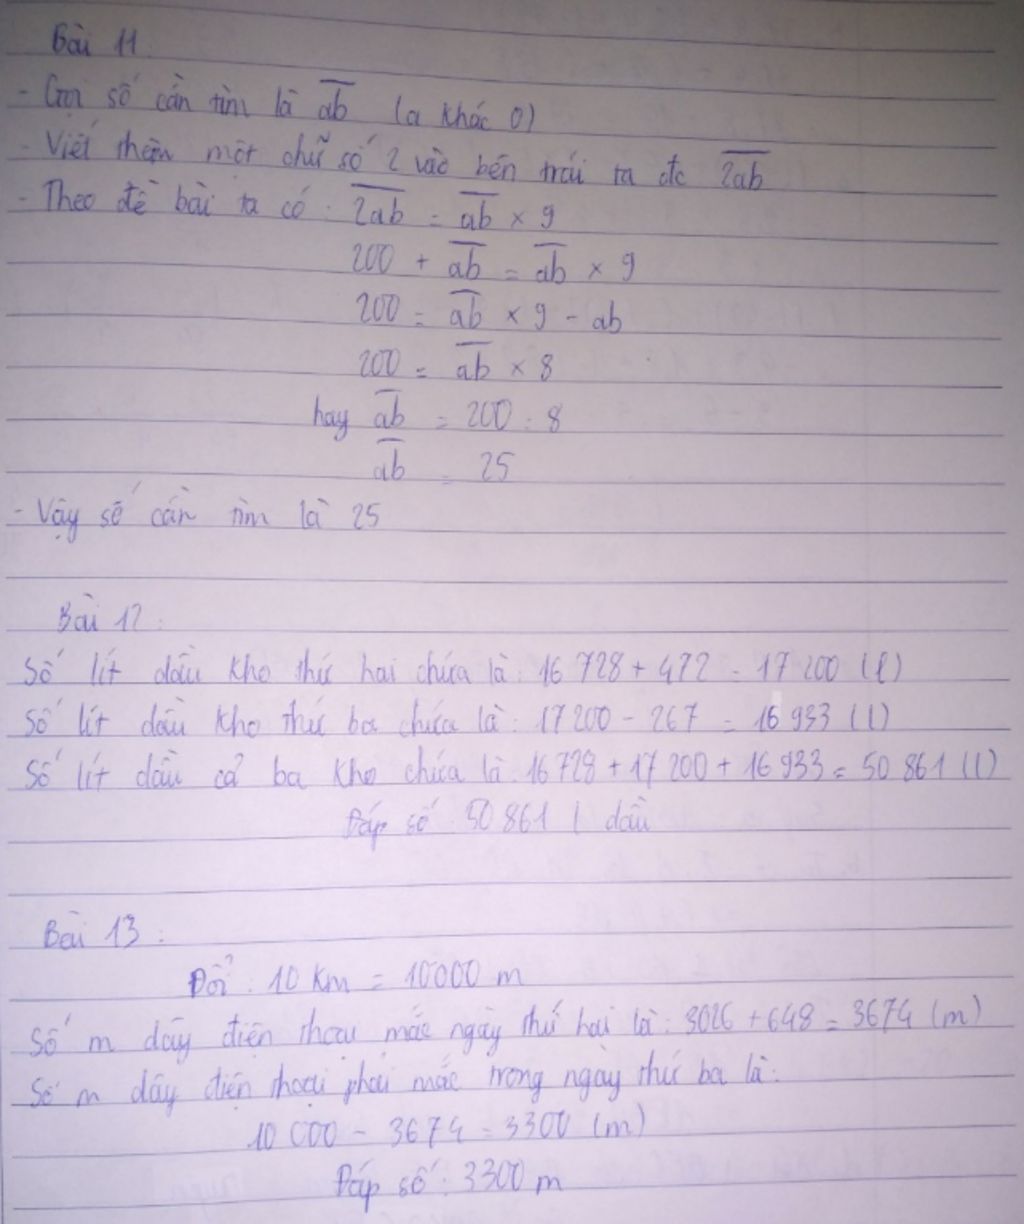 Bài 11.
- Gọi số cần tìm là ab (a khác 0)
- Viết thêm một chữ số 2 vào bên trái ta đc 2ab
- Theo đề bài ta có : 2ab = ab × 9
200 + ab = ab × 9
200 = ab × 9 - ab
200 = ab × 8
hay ab = 200 : 8
ab = 25
- Vậy số cần tìm là 25
Bài 12 :
Số lít dầu kho thứ hai chứa là : 16 728 + 472 = 17 200 (l)
Số lít dầu kho thứ ba chứa là : 17 200 - 267 = 16 933 (l)
Số lít dầu cả ba kho chứa là : 16 728 + 17 200 + 16 933 = 50 861 (l)
Đáp số : 50 861 l dầu
Bài 13 :
Đổi : 10 km = 10000 m
Số m dây điện thoại mắc ngày thứ hai là : 3026 + 648 = 3674 (m)
Số m dây điện thoại phải mắc trong ngày thứ ba là :
10 000 - 3674 = 3300 (m)
Đáp số : 3300 m